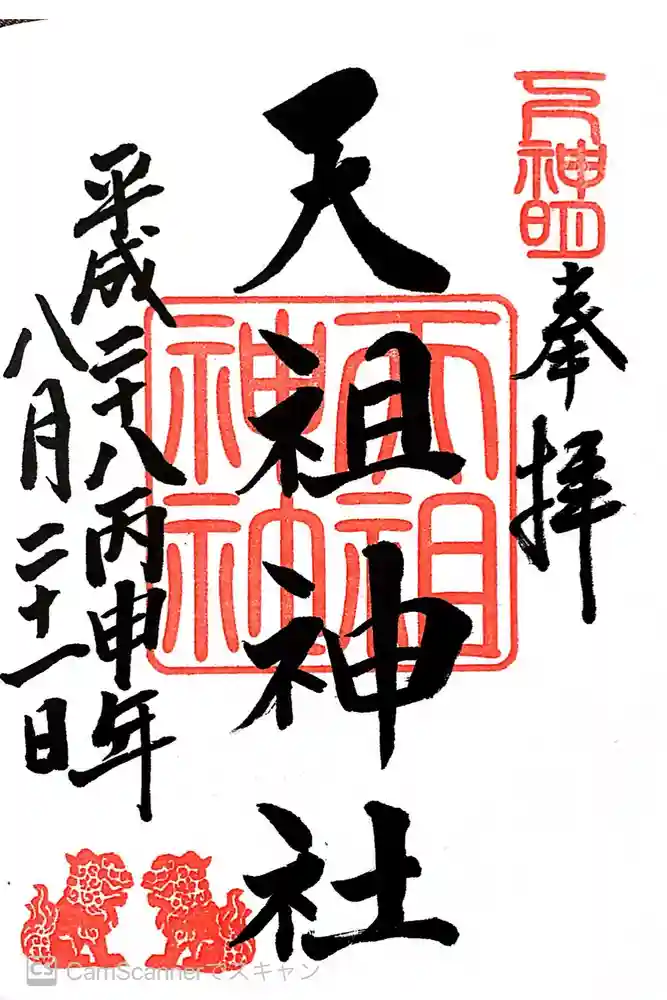 奉拝
天祖神社
平成二十八丙申年
八月二十一日
神明
天祖
CS CamScannerでスキャン